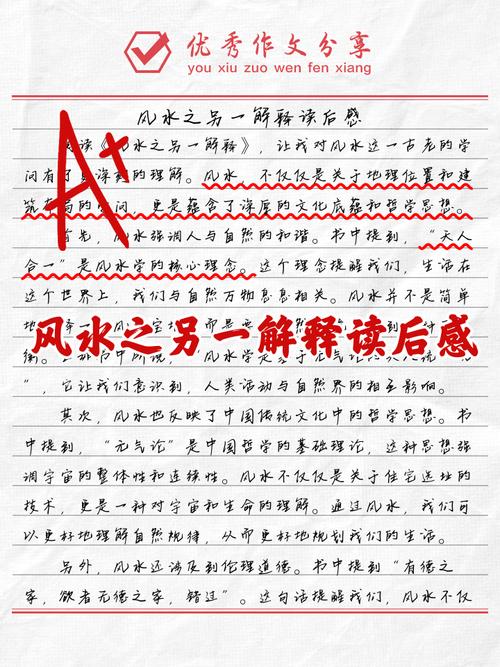 优秀作文分享
you xiu zuo wen fen xiang
风水之另一解释读后感
A+
读《风水之另一解释》，让我对风水这一古老的学
问有了更深刻的理解。风水，不仅仅是关于地理位置和建
筑布局的学问，更是蕴含了深厚的文化底蕴和哲学思想。
首先，风水强调人与自然的和谐。书中提到，“天人
合一”是风水学的核心理念。这个理念提醒我们，生活在
这个世界上，我们与自然万物息息相关。风水并不是简单
风水之另一解释读后感
”，它让我们意识到，人类活动与自然界的相互影响。
其次，风水也反映了中国传统文化中的哲学思想。书
中提到，“元气论”是中国哲学的基础理论，这种思想强
调宇宙的整体性和连续性。风水不仅仅是关于住宅选址的
技术，更是一种对宇宙和生命的理解。通过风水，我们可
以更好地理解自然规律，从而更好地规划我们的生活。
另外，风水还涉及到伦理道德。书中提到“有德之
家，欲者无德之家，错过”。这句话提醒我们，风水不仅